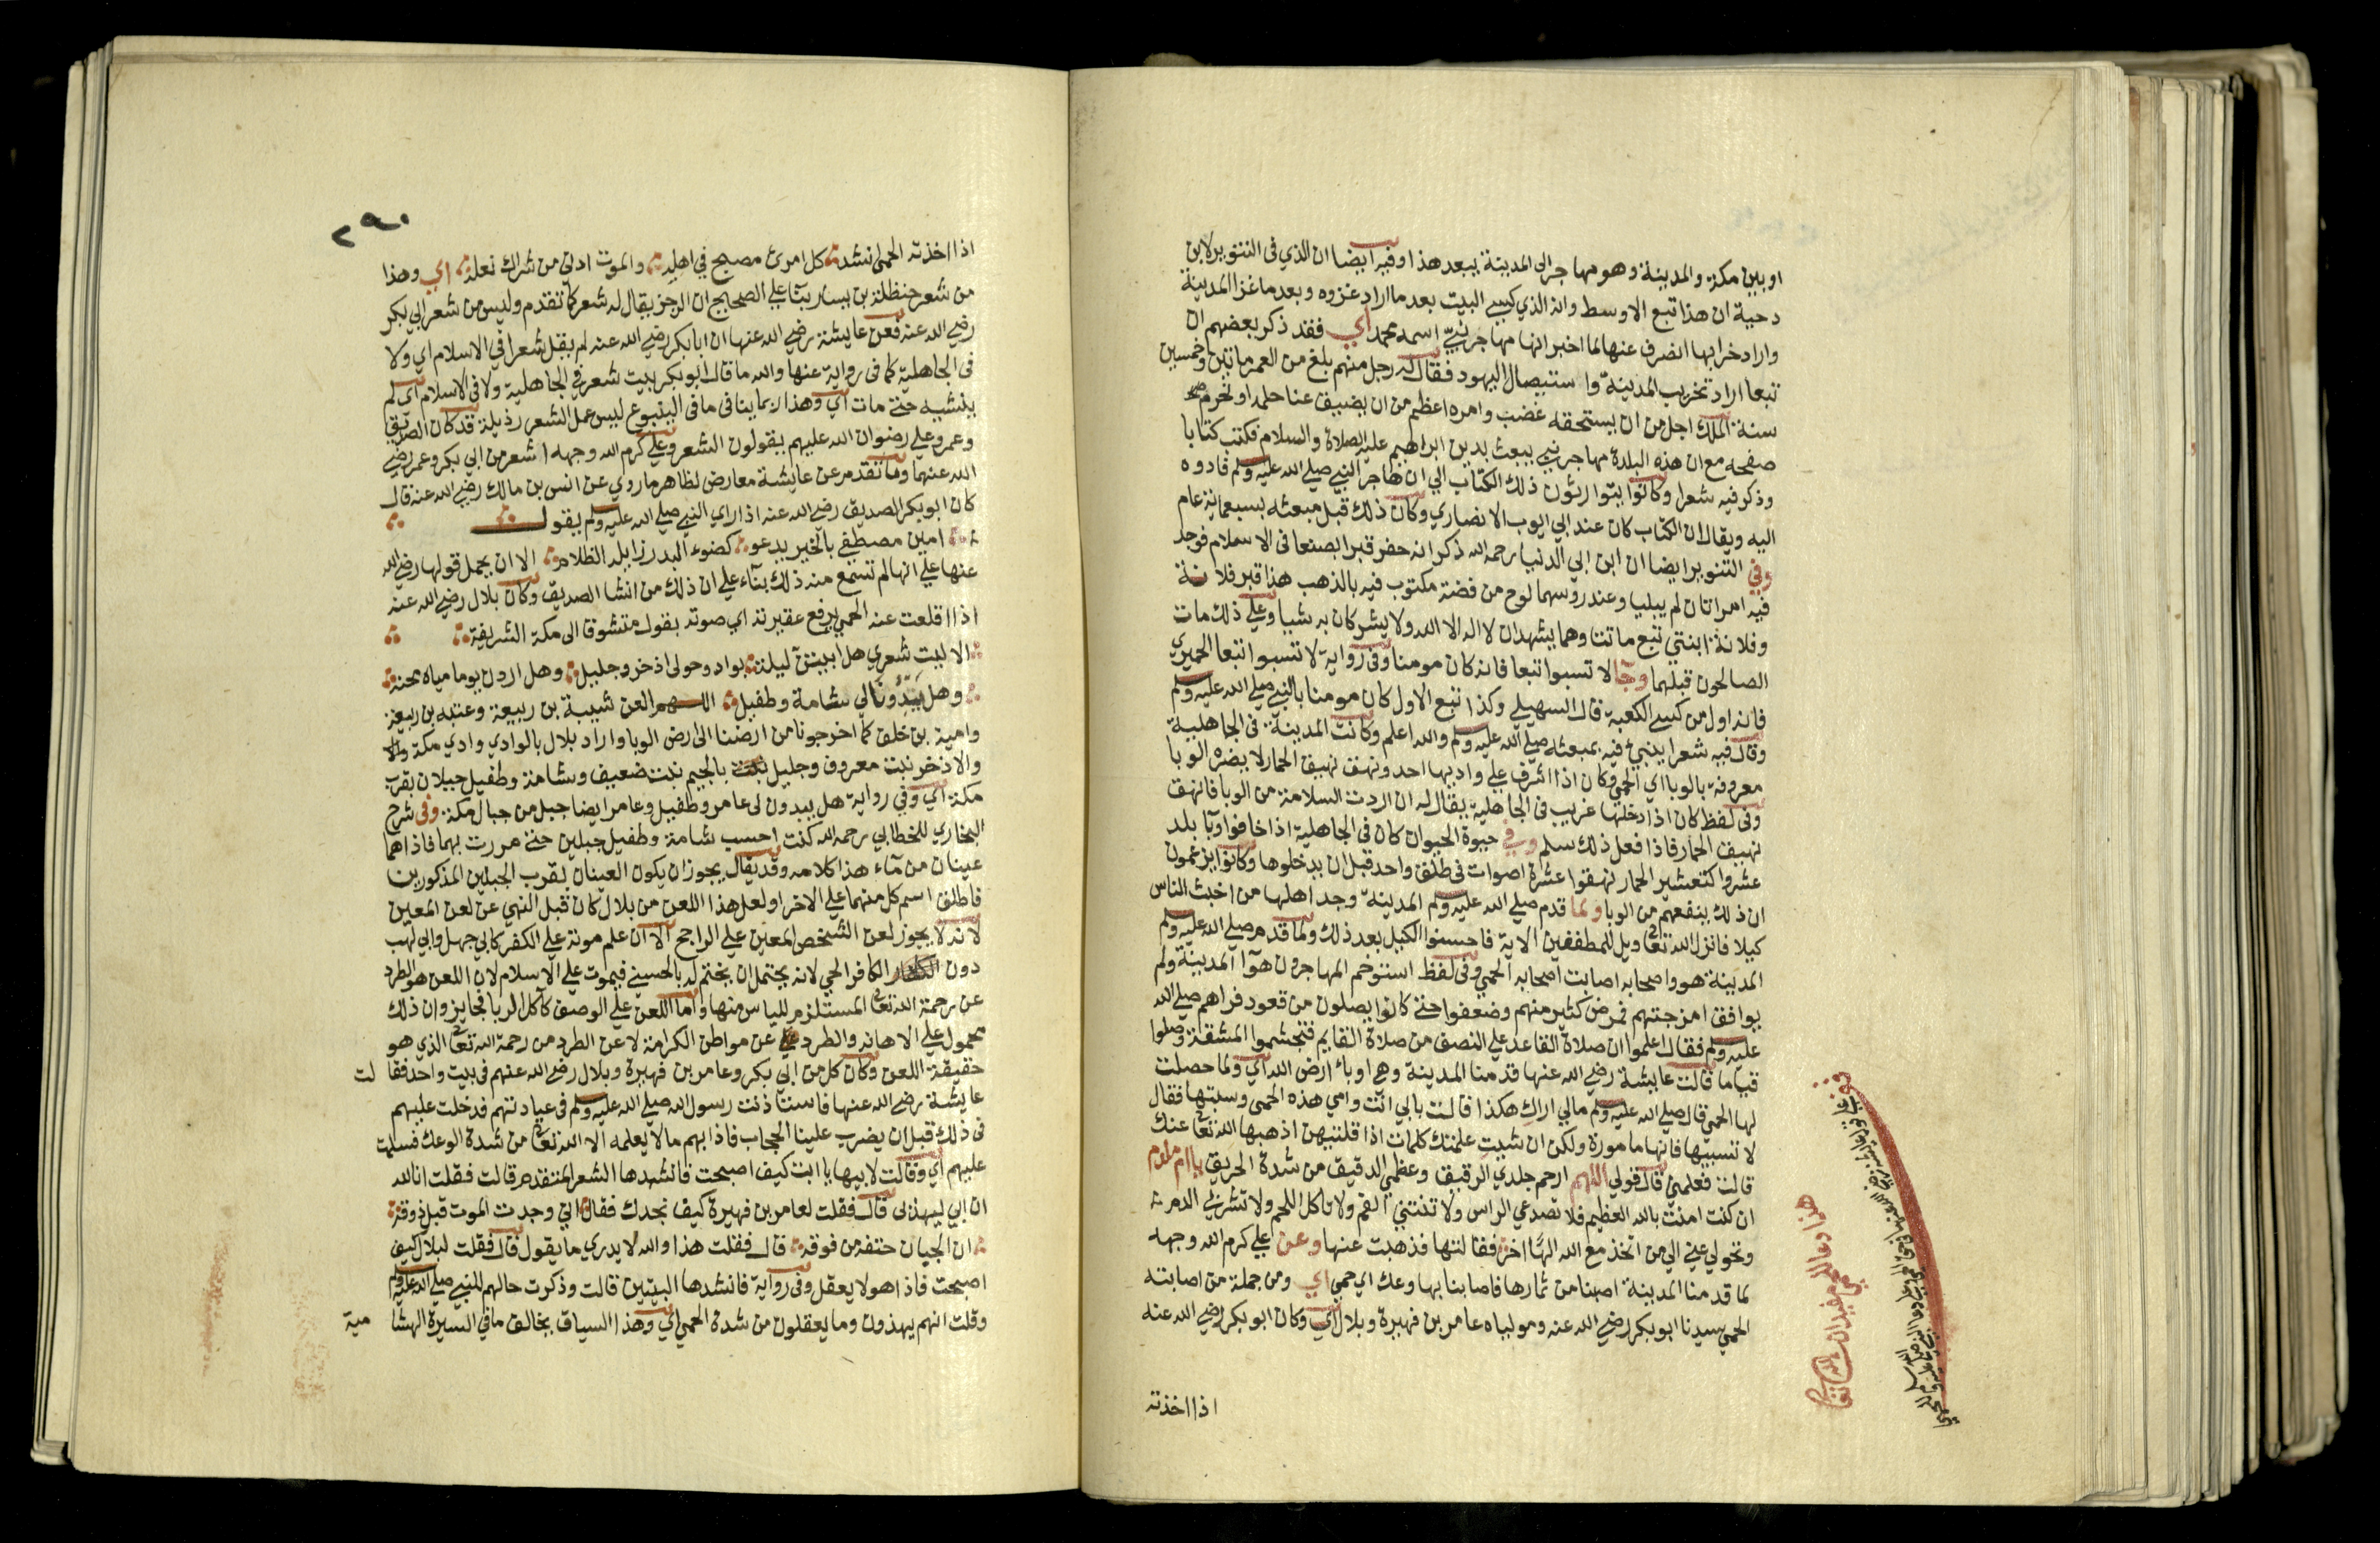 او بين مكة والمدينة وهو مهاجر الى المدينة يبعد هذا وفيه ايضا ان الذي في التنوير لابن
دحية ان هذا تبع الاوسط وانه الذي كسي البيت بعد ما اراد غزوه وبعد ما غزا المدينة
واراد خرابها انصرف عنها لما اخبر انها مهاجر نبيّ اسمه محمد اي فقد ذكر بعضهم ان
تبعا اراد تخريب المدينة وا ستيصال اليهود فقال له رجل منهم بلغ من العمر مائتين وخمسين
سنة الملك اجل من ان يستحقه غضب وامره اعظم من ان يضيق عنا حلمه او نحرم
صفحه مع ان هذه البلدة مهاجر نبي يبعث بدين ابراهيم عليه الصلاة والسلام فكتب كتابا
وذكر فيه شعرا وكانوا يتوارثون ذلك الكتاب الي ان هاجر النبي صلي الله عليه وسلم فادوه
اليه ويقال ان الكتاب كان عند ابي ايوب الانصاري وكان ذلك قبل مبعثه بسبعمائة عام
وفي التنوير ايضا ان ابن ابي الدنيا رحمه الله ذكر انه حفر قبرا بصنعا في الاسلام فوجد
فيه امراتان لم يبليا وعند روسهما لوح من فضة مكتوب فيه بالذهب هذا قبر فلانة
وفلانة ابنتي تبع ماتتا وهما يشهدان لا اله الا الله ولا يشركان به شيا وعلي ذلك مات
الصالحون قبلهما وجا لا تسبوا تبعا فانه كان مومنا وفي رواية لا تسبوا تبعا الحميري
فانه اول من كسي الكعبة قال السهيلي وكذا تبع الاول كان مومنا بالنبي صلي الله عليه وسلم
وقال فيه شعرا ينبئ فيه بمبعثه صلي الله عليه وسلم والله اعلم وكانت المدينة في الجاهلية
معروفة بالوبا اي الحمي وكان اذا اشرف علي واديها احد ونهق نهيق الحمار لا يضره الوبا
وفي لفظ كان اذا دخلها غريب في الجاهلية يقال له ان اردت السلامة من الوبا فانهق
نهيق الحمار فاذا فعل ذلك سلم وفي حيوة الحيوان كان في الجاهلية اذا خافوا وبا بلد
عشروا كتعشير الحمار نهقوا عشرة اصوات في طلق واحد قبل ان يدخلوها وكانوا يزعمون
ان ذلك ينفعهم من الوبا ولما قدم صلي الله عليه وسلم المدينة وجد اهلها من اخبث الناس
كيلا فانزل الله تعالي ويل للمطففين الاية فاحسنوا الكيل بعد ذلك ولما قدم صلي الله عليه وسلم
المدينة هو واصحابه اصابت اصحابه الحمي وفي لفظ استوخم المهاجرون هوآ المدينة ولم
يوافق امزجتهم فمرض كثير منهم وضعفوا حتي كانوا يصلون من قعود فراهم صلي الله
عليه وسلم فقال اعلموا ان صلاة القاعد علي النصف من صلاة القايم فتجشموا المشقة وصلوا
قياما قالت عايشة رضي الله عنها قدمنا المدينة وهي اوبا ارض الله اي ولما حصلت
لها الحمي قال صلي الله عليه وسلم مالي اراكِ هكذا قالت بابي انت وامي هذه الحمي وسبتها فقال
لا تسبيها فانها مامورة ولكن ان شيت علمتك كلمات اذا قلتيهن اذهبها الله تعالي عنك
قالت فعلمني قال قولي اللهم ارحم جلدي الرقيق وعظمي الدقيق من شدة الحريق يا ام ملدم
ان كنت امنت بالله العظيم فلا تصدعي الراس ولا تنتني الفم ولا تاكل اللحم ولا تشربي الدم
وتحولي عني الي من اتخذ مع الله الها اخر فقالتها فذهبت عنها وعن علي كرم الله وجهه
لما قدمنا المدينة اصبنا من ثمارها فاصابنا بها وعك اي حمي اي ومن جملة من اصابته
الحمي سيدنا ابو بكر رضي الله عنه ومولياه عامر بن فهيرة وبلال اي وكان ابو بكر رضي الله عنه
اذا اخذته
هذا دعا للحمي مفيد ان شا الله تعالى
٢٩٠
اذا اخذته الحمي انشد كل امرئ مصبح في اهله والموت ادني من شراك نعله اي وهذا
من شعر حنظلة بن يسار بنا علي الصحيح ان الرجز يقال له شعر كما تقدم وليس من شعر ابي بكر
رضي الله عنه فعن عايشة رضي الله عنها ان ابا بكر رضي الله عنه لم يقل شعرا في الاسلام اي ولا
في الجاهلية كما في رواية عنها والله ما قال ابو بكر بيت شعر في الجاهلية ولا في الاسلام اي لم
ينشيه حتي مات اي وهذا ربما ينافي ما في الينبوع ليس عمل الشعر رذيلة قد كان الصديق
وعمر وعلي رضوان الله عليهم يقولون الشعر وعلي كرم الله وجهه اشعر من ابي بكر وعمر رضي
الله عنهما وما تقدم عن عايشة معارض لظاهر ما روي عن انس بن مالك رضي الله عنه قال
كان ابو بكر الصديق رضي الله عنه اذا راي النبي صلي الله عليه وسلم يقول
امين مصطفي بالخير يدعو كضوء البدر زايله الظلام الا ان يحمل قولها رضي الله
عنها علي انها لم تسمع منه ذلك بنآء علي ان ذلك من انشا الصديق وكان بلال رضي الله عنه
اذا اقلعت عنه الحمي يرفع عقيرته اي صوته يقول متشوقا الى مكة الشريفة
الا ليت شعري هل ابيتن ليلة بواد وحولي اذخر وجليل وهل اردن يوما مياه مجنة
وهل يَبْدُوَنْ لي شامة وطفيل اللهم العن شيبة بن ربيعة وعتبه بن ربيعة
وامية بن خلف كما اخرجونا من ارضنا الى ارض الوبا واراد بلال بالوادي وادي مكة
والاذخر نبت معروف وجليل بالجيم نبت ضعيف وشامة وطفيل جبلان بقرب
مكة اي وفي رواية هل يبدون لي عامر وطفيل وعامر ايضا جبل من جبال مكة وفي شرح
البخاري للخطابي رحمه الله كنت احسب شامة وطفيل جبلين حتي مررت بهما فاذا هما
عينان من مآء هذا كلامه وقد يقال يجوز ان يكون العينان لقرب الجبلين المذكورين
فاطلق اسم كل منهما علي الاخر ولعل هذا اللعن من بلال كان قبل النهي عن لعن المعين
لانه لا يجوز لعن الشخص المعين علي الراجح الا ان علم موته علي الكفر كابي جهل وابي لهب
دون الكافر الحي لانه يحتمل ان يختم له بالحسني فيموت علي الاسلام لان اللعن هو الطرد
عن رحمة الله تعالي المستلزم للياس منها واما اللعن علي الوصف كآكل الربا فجايز وان ذلك
محمول علي الاهانه والطرد عن مواطن الكرامة لا عن الطرد من رحمة الله تعالي الذي هو
حقيقة اللعن وكان كل من ابي بكر وعامر بن فهيرة وبلال رضي الله عنهم في بيت واحد فقالت
عايشة رضي الله عنها فاستاذنت رسول الله صلي الله عليه وسلم في عيادتهم فدخلت عليهم
في ذلك قبل ان يضرب علينا الحجاب فاذا بهم ما لا يعلمه الا الله تعالي من شدة الوعك فسلمت
عليهم اي وقالت لابيها يا ابت كيف اصبحت فانشدها الشعر المتقدم قالت فقلت انا لله
ان ابي ليهذي قال فقلت لعامر بن فهيرة كيف نجدك فقال اني وجدت الموت قبل ذوقه
ان الجبان حتفه من فوقه قال فقلت هذا والله لا يدري ما يقول قال فقلت لبلال كيف
اصبحت فاذا هو لا يعقل وفي رواية فانشدها البيتين قالت وذكرت حالهم للنبي صلي الله عليه وسلم
وقلت انهم يهذون وما يعقلون من شدة الحمي اي وهذا السياق يخالف ما في السيرة الهشامية